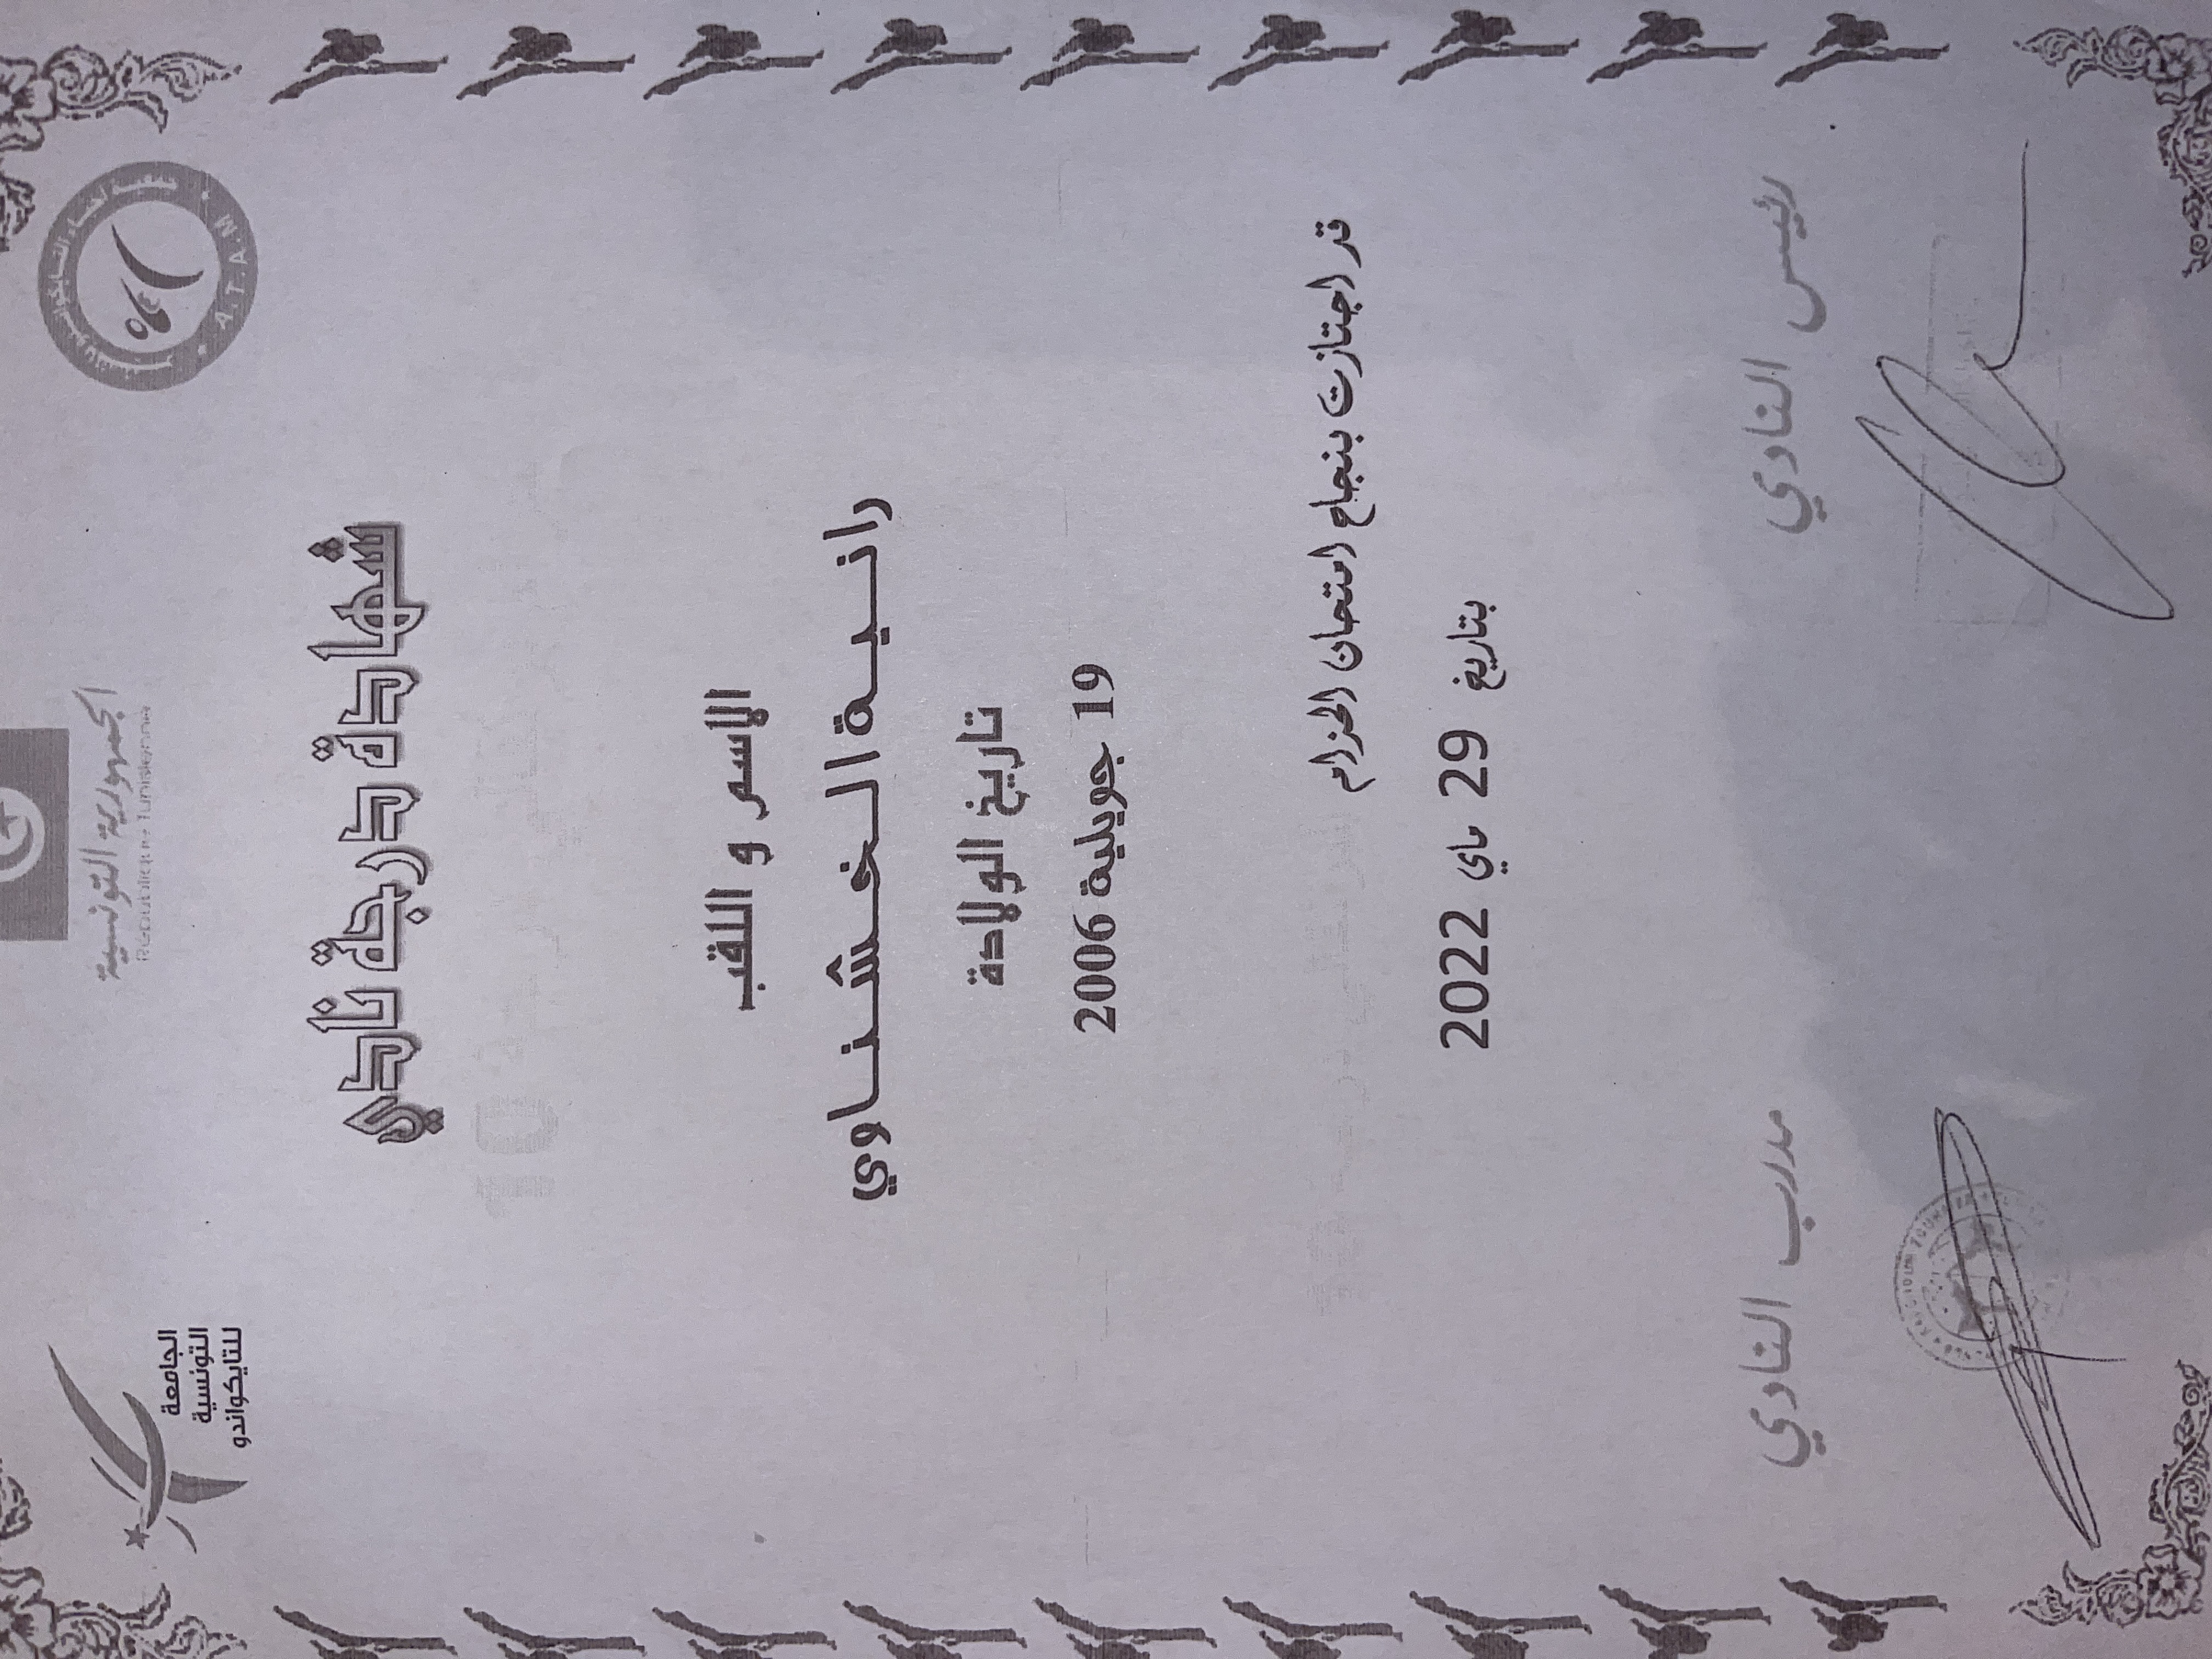 الجمهورية التونسية
République Tunisienne
الجامعة
التونسية
للتايكواندو
A.T.A.M
شهادة درجة نادي
الاسم و اللقب
رانية الخشناوي
تاريخ الولادة
19 جويلية 2006
قد اجتازت بنجاح امتحان الحزام
بتاريخ 29 ماي 2022
رئيس النادي
مدرب النادي